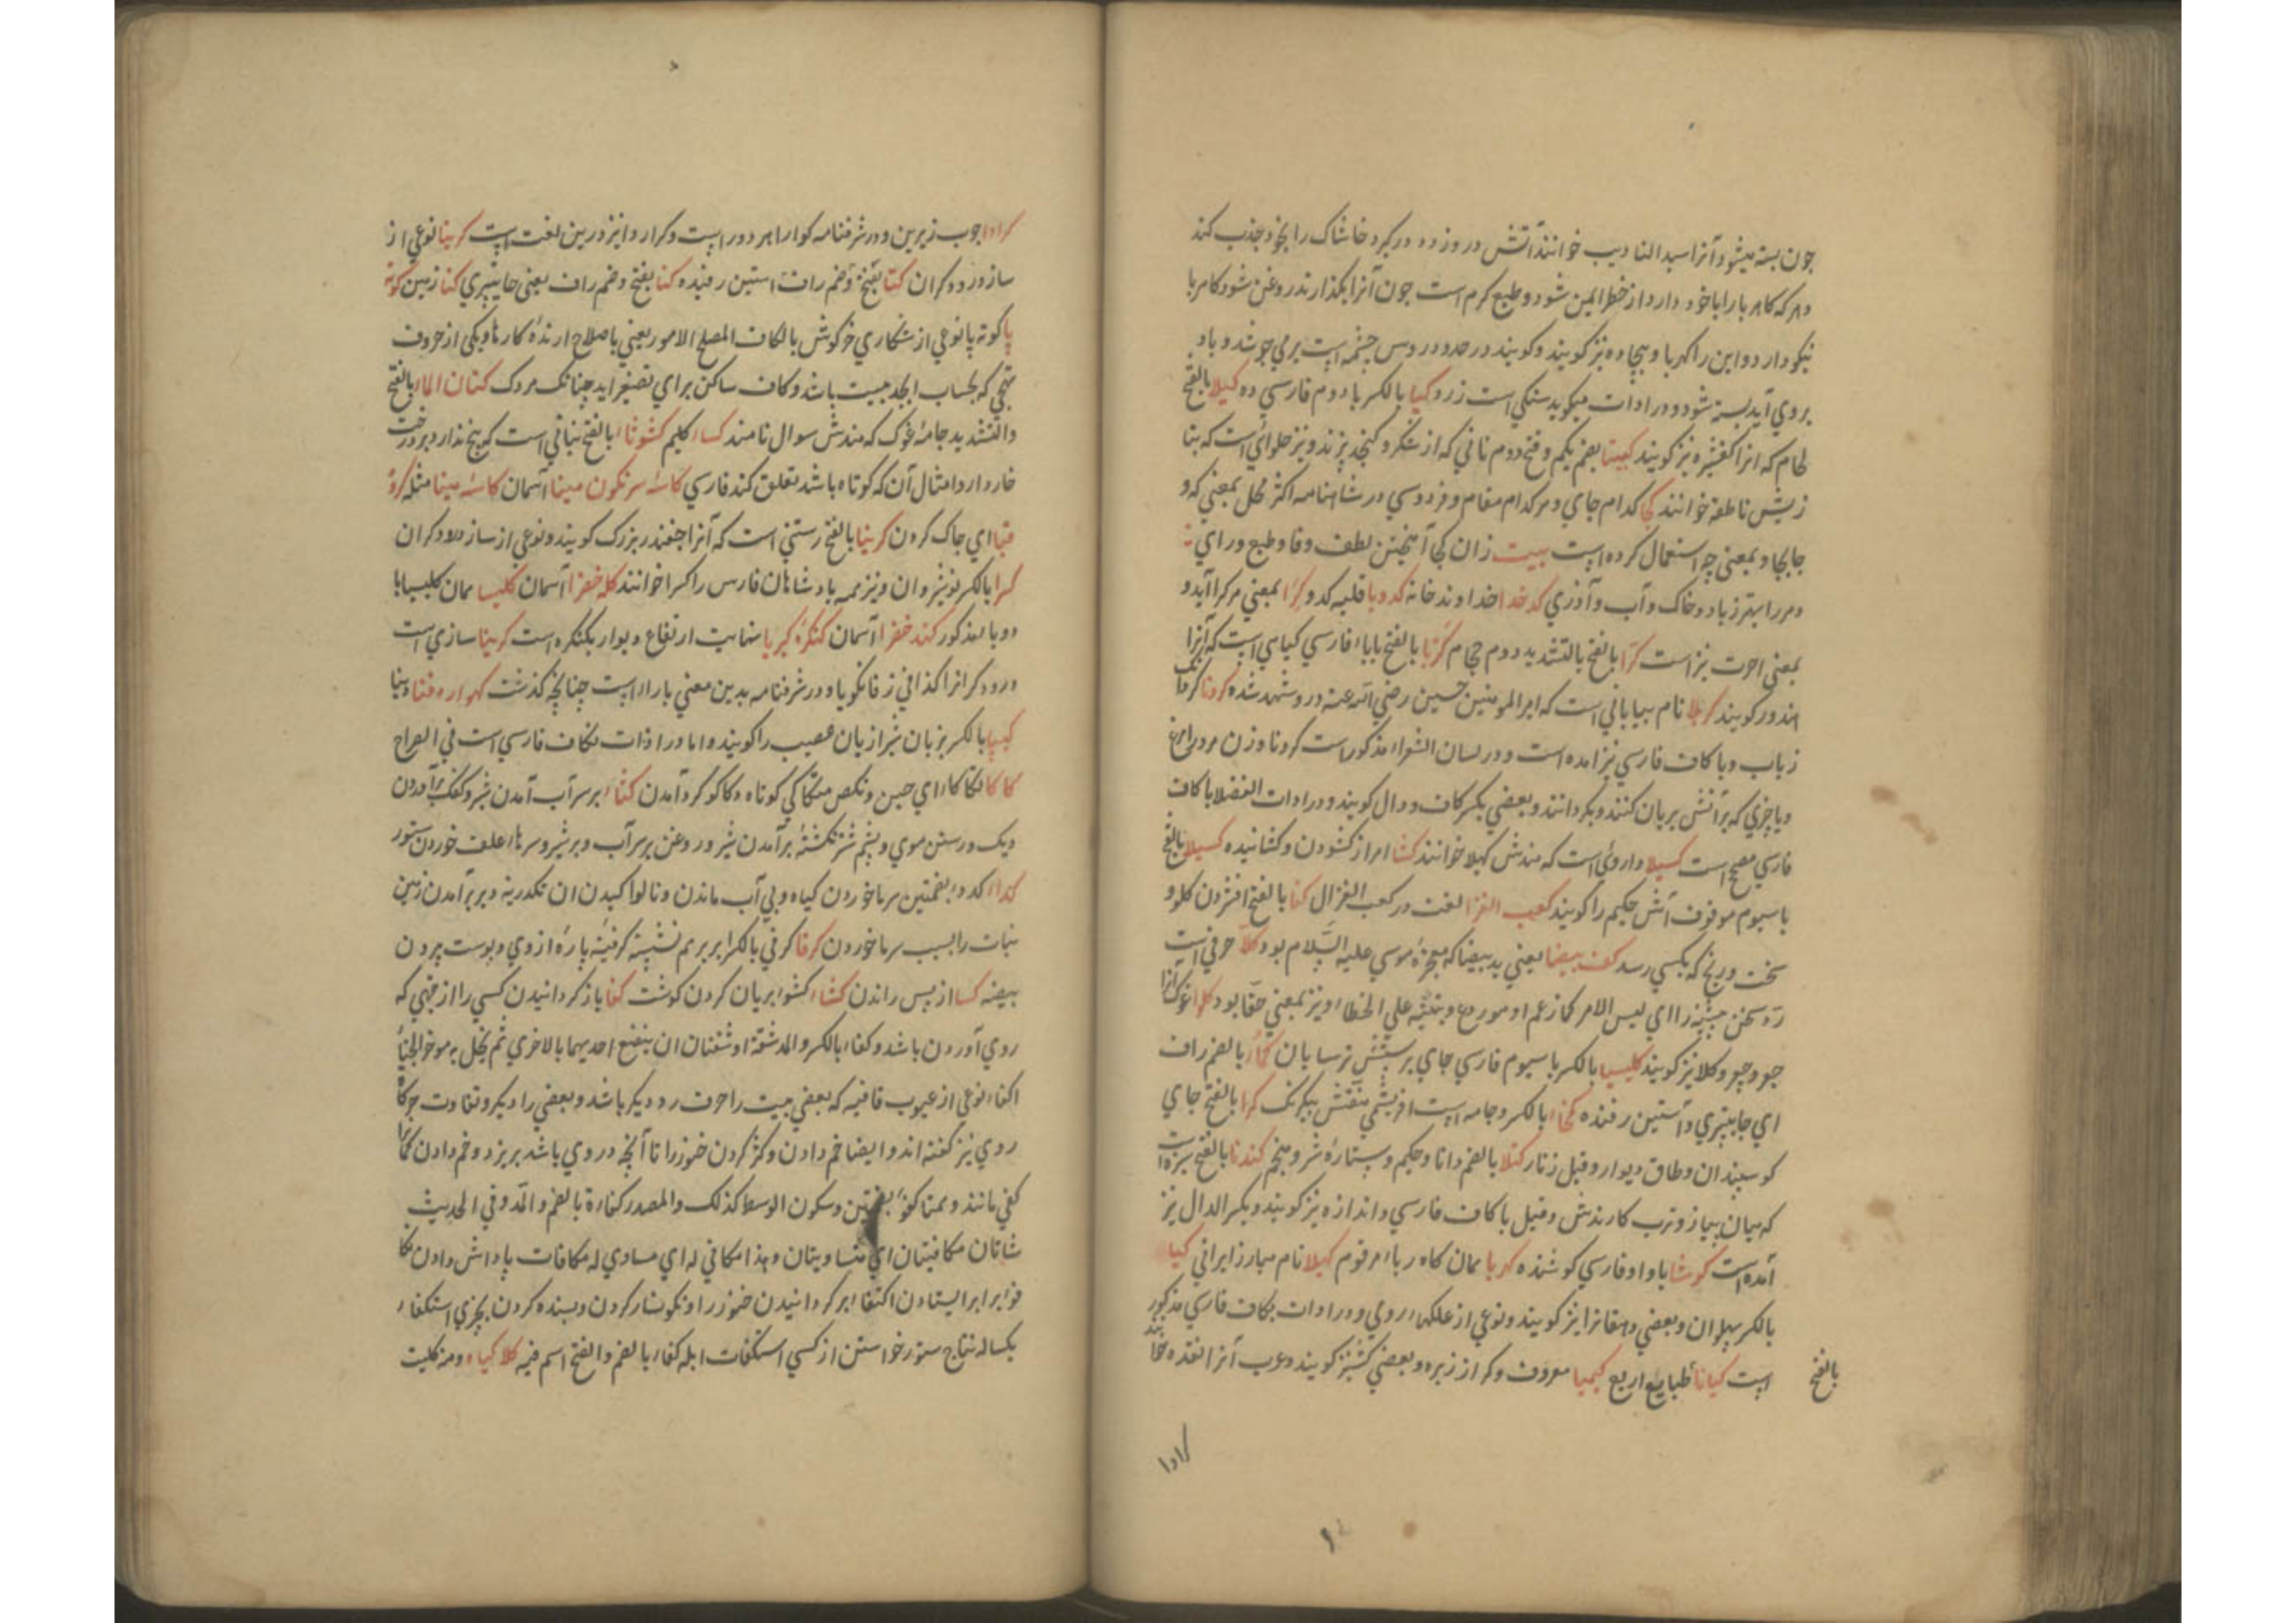 چون بسته میشود آنرا سید النا دیب خوانند آتش در وزود در کیرد خاشاک را بخود جذب کند
و هر که کاه ربا را با خود دارد از خطر ایمن شود و طبع کرم است چون آنرا بکذارند روغن شود کاهربا
نیکو دارد و این را کهربا و بیجاده نیز کویند و کویند در حدود روس چشمه ایست بر می جوشد و باد
بروی آید بسته شود و در ادات میکوید سنکی است زرد کیبا بالکسر با دوم فارسی ده کیلا بالفتح
لحام که انرا کفشیره نیز کویند کبیتا بضم یکم و فتح دوم نانی که از شکر و کنجد پزند و نیز حلوائی است که بتا
زیش ناطفه خوانند کجا کدام جای و هر کدام مقام و فردوسی در شاهنامه اکثر محل بمعنی که و
جابجا و بمعنی چو استعمال کرده ایست بیت زان کجا آمیختن لطف وفا و طبع و رای
و مر را بهتر ز باد و خاک و آب و آذری کدخدا خداوند خانه کدوبا قلیه کدو کرا بمعنی هر کرا آید و
بمعنی اجرت نیز است کرا بالفتح بالتشدید دوم حجام کرپا بالفتح با باء فارسی کیاهی ایست که آنرا
اندور کویند کربلا نام بیابانی است که امیر المومنین حسین رضی الله عنه در و شهید شده کردنا کرداب
زباب و با کاف فارسی نیز امده است و در لسان الشعراء مذکور است کردنا وزن مردم امرغ
و یا چیزی که بر آتش بریان کنند و بکردانند و بعضی بکسر کاف و دال کویند و در ادات الفضلا با کاف
فارسی مصحح است کسیلا داروئی است که هندش کهیلا خوانند کشا امر از کشودن و کشاننده کسیلا بالفتح
با سیوم موقوف آتش حکیم را کویند کعب الغزا لغت در کعب الغزال کفا بالفتح افشردن کلو و
سخت و رنج که بکسی رسد کف بیضا یعنی ید بیضا که معجزه موسی علیه السلام بود کلا حرفی است
رد سخن پیشینه را ای لیس الامر کما زعم او مورد ها و تنبیه علی الخطاء و نیز بمعنی حقا بود کلوا غوک انرا
جود و چپود و کلا نیز کویند کلیسیا بالکسر با سیوم فارسی جای پرستش ترسایان کماء بالضم راف
ای جابیتری و آستین رفنده کمخا بالکسر و جامه ایست ابریشمی منقش بیکرنک کرا بالفتح جای
کوسپندان و طاق دیوار و قبل زنار کنلا بالضم دانا و حکیم و ستاره شمر و منجم کندنا بالفتح سبزه است
که میان پیاز و ترب کارندش و قیل با کاف فارسی و اندازه نیز کویند و بکسر الدال نیز
آمده است کوشا با واو فارسی کوشنده کهربا همان کاه ربا مرقوم کهیلا نام مبارز ایرانی کیا
بالکسر پهلوان و بعضی دهقانرا نیز کویند و نوعی از علکهاء رومی و در ادات بکاف فارسی مذکور
ایست کیانا طبایع اربع کیمیا معروف و کر از زبره و بعضی کشنیز کویند و عرب آنرا نقده خوانند
بالفتح
کراوا

کراوا چوب زیرین و در شرفنامه کوارا مر دور ایست و کراروا نیز درین لغت ایست کرینا نوعی از
ساز درودکران کتا بفتح و ضم راف استین رفنده کنا بفتح و ضم راف یعنی جابیتری کنا زمین کوته
پا کوته پا نوعی از شکاری خرکوش بالکاف المصلح الامور یعنی باصلاح ارنده کارها و یکی از حروف
تهجی که بحساب ابجد بیست باشد و کاف ساکن برای تصغیر اید چنانک مردک کتان الما بالفتح
والتشدید جامه غوک که هندش سوال نامند کساء کلیم کشوثا بالفتح نباتی است که بیخ ندارد بر درخت
خاردار و امثال آن که کوتاه باشد تعلق کند فارسی کاسه سرنکون مینا آسمان کاسه مینا مثله کرد
قبا ای چاک کردن کرینا بالفتح رستنی است که آنرا چغندر بزرک کویند و نوعی از ساز درودکران
کسرا بالکسر نوشیروان و نیز همه پادشاهان فارس را کسرا خوانند کله خضرا آسمان کلیسا همان کلیسیا با
دو با مذکور کند خضرا آسمان کنکره کبریا نهایت ارتفاع دیوار بکنکره است کرینا سازی است
درودکر انرا کذافی زفانکویا و در شرفنامه بدین معنی با را ایست چنانچه کذشت کهواره فنا دنیا
کیپا بالکسر بزبان شیرازیان عصیب را کویند و اما در ادات بکاف فارسی است فی الصراح
کاکا تکاکاء ای جبن و نکص متکاکی کوتاه و کاکو کرد آمدن کثاء بر سر آب آمدن شیر و کفک بر آوردن
دیک و رستن موی و پشم شتر کشته بر آمدن شیر و روغن بر سر آب و بر شیر و سرما علف خوردن ستور
کداء کدو بضمتین سرما خوردن کیاه و بی آب ماندن و نالوا کیدن ان تکدریه و بر بر آمدن زمین
نبات را بسبب سرما خوردن کرفا کرفی بالکسر ابر بر هم نشسته کرفیه پاره از وی و پوست پردن
بیضه کسا از پس راندن کشاء کشو بریان کردن کوشت کفا باز کردانیدن کسی را از جهتی که
روی آوردن باشد و کفاء بالکسر والمد شقة او شقتان ان ینفتح احدیهما بالاخری ثم یحل به موخر الخباء
اکفاء نوعی از عیوب قافیه که بعضی بیت را حرف رو دیکر باشد و بعضی را دیکر و تفاوت حرکات
روی نیز کفته اند و ایضا خم دادن و کژ کردن خنوز را تا آنچه در وی باشد بریزد و خم دادن کمان
کفی مانند و همتا کفؤ بضمتین و سکون الوسط کذلک والمصدر کفاءة بالضم والمد و فی الحدیث
شاتان مکافیتان ای متساویتان و هذا مکافی له ای مساوی له مکافات پاداش دادن تکا
فؤ برابر ایستادن اکتفاء بر کردانیدن خنوز را و نکونسار کردن و بسنده کردن بچیزی استکفاء
یکساله نتاج ستور خواستن از کسی استکفات ابله کفاء بالضم والفتح اسم فیه کلا کیاه و منه کلیت